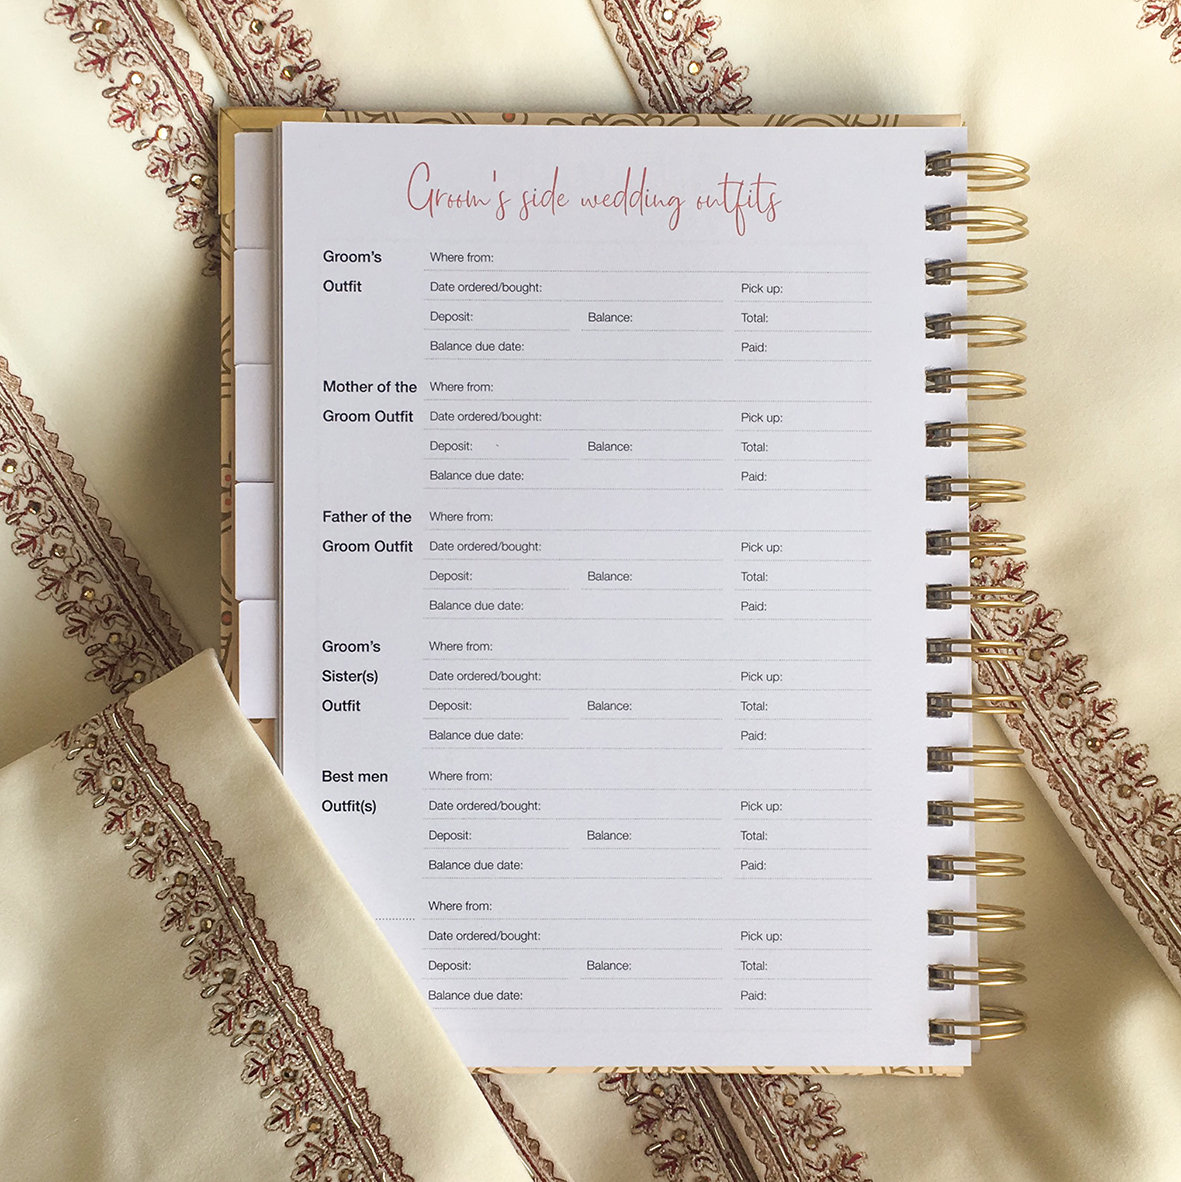 Groom's side wedding outfits
Groom's Where from:
Outfit Date ordered/bought: Pick up:
Deposit: Balance: Total:
Balance due date: Paid:
Mother of the Where from:
Groom Outfit Date ordered/bought: Pick up:
Deposit: Balance: Total:
Balance due date: Paid:
Father of the Where from:
Groom Outfit Date ordered/bought: Pick up:
Deposit: Balance: Total:
Balance due date: Paid:
Groom's Where from:
Sister(s) Date ordered/bought: Pick up:
Outfit Deposit: Balance: Total:
Balance due date: Paid:
Best men Where from:
Outfit(s) Date ordered/bought: Pick up:
Deposit: Balance: Total:
Balance due date: Paid:
Where from:
Date ordered/bought: Pick up:
Deposit: Balance: Total:
Balance due date: Paid: